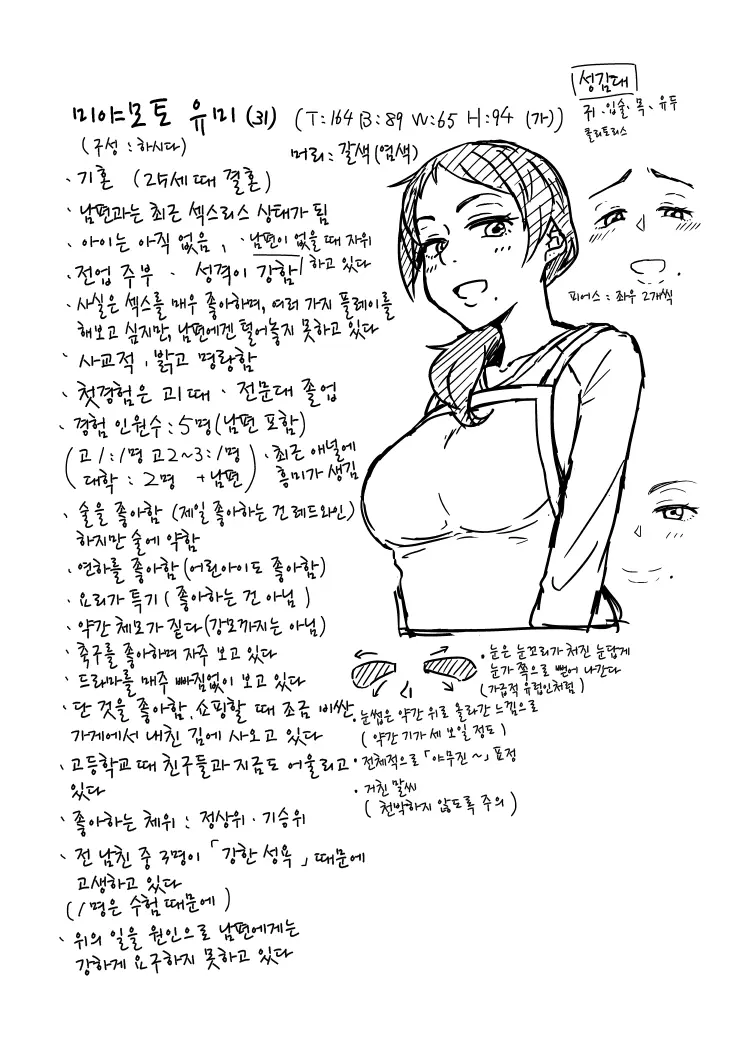 미야모토 유미 (31) (T:164 B:89 W:65 H:94 (가))
(구성 : 하시다)
머리 : 갈색(염색)
성감대
귀、입술、목、유두
클리토리스
、기혼 (25세 때 결혼)
、남편과는 최근 섹스리스 상태가 됨
、아이는 아직 없음 , 、남편이 없을 때 자위
하고 있다
、전업 주부 、 성격이 강함
、사실은 섹스를 매우 좋아하며, 여러 가지 플레이를
해보고 싶지만, 남편에겐 털어놓지 못하고 있다
、사교적 , 밝고 명랑함
、첫경험은 고1 때 、 전문대 졸업
、경험 인원수 : 5명 (남편 포함)
(고1 : 1명 고2~3 : 1명
대학 : 2명 +남편)
、최근 애널에
흥미가 생김
、술을 좋아함 (제일 좋아하는 건 레드와인)
하지만 술에 약함
、연하를 좋아함 (어린아이도 좋아함)
、요리가 특기 (좋아하는 건 아님)
、약간 체모가 짙다 (강모까지는 아님)
、축구를 좋아하며 자주 보고 있다
、드라마를 매주 빠짐없이 보고 있다
、단 것을 좋아함, 쇼핑할 때 조금 비싼
가게에서 내친 김에 사오고 있다
、고등학교 때 친구들과 지금도 어울리고
있다
、좋아하는 체위 : 정상위・기승위
、전 남친 중 3명이 「강한 성욕」 때문에
고생하고 있다
(1명은 수험 때문에)
、위의 일을 원인으로 남편에게는
강하게 요구하지 못하고 있다
피어스 : 좌우 2개씩
・눈은 눈꼬리가 처진 눈답게
눈가 쪽으로 뻗어 나간다
(가급적 유럽인처럼)
・눈썹은 약간 위로 올라간 느낌으로
(약간 기가 세 보일 정도)
・전체적으로 「야무진~」 표정
・거친 말씨
(천박하지 않도록 주의)